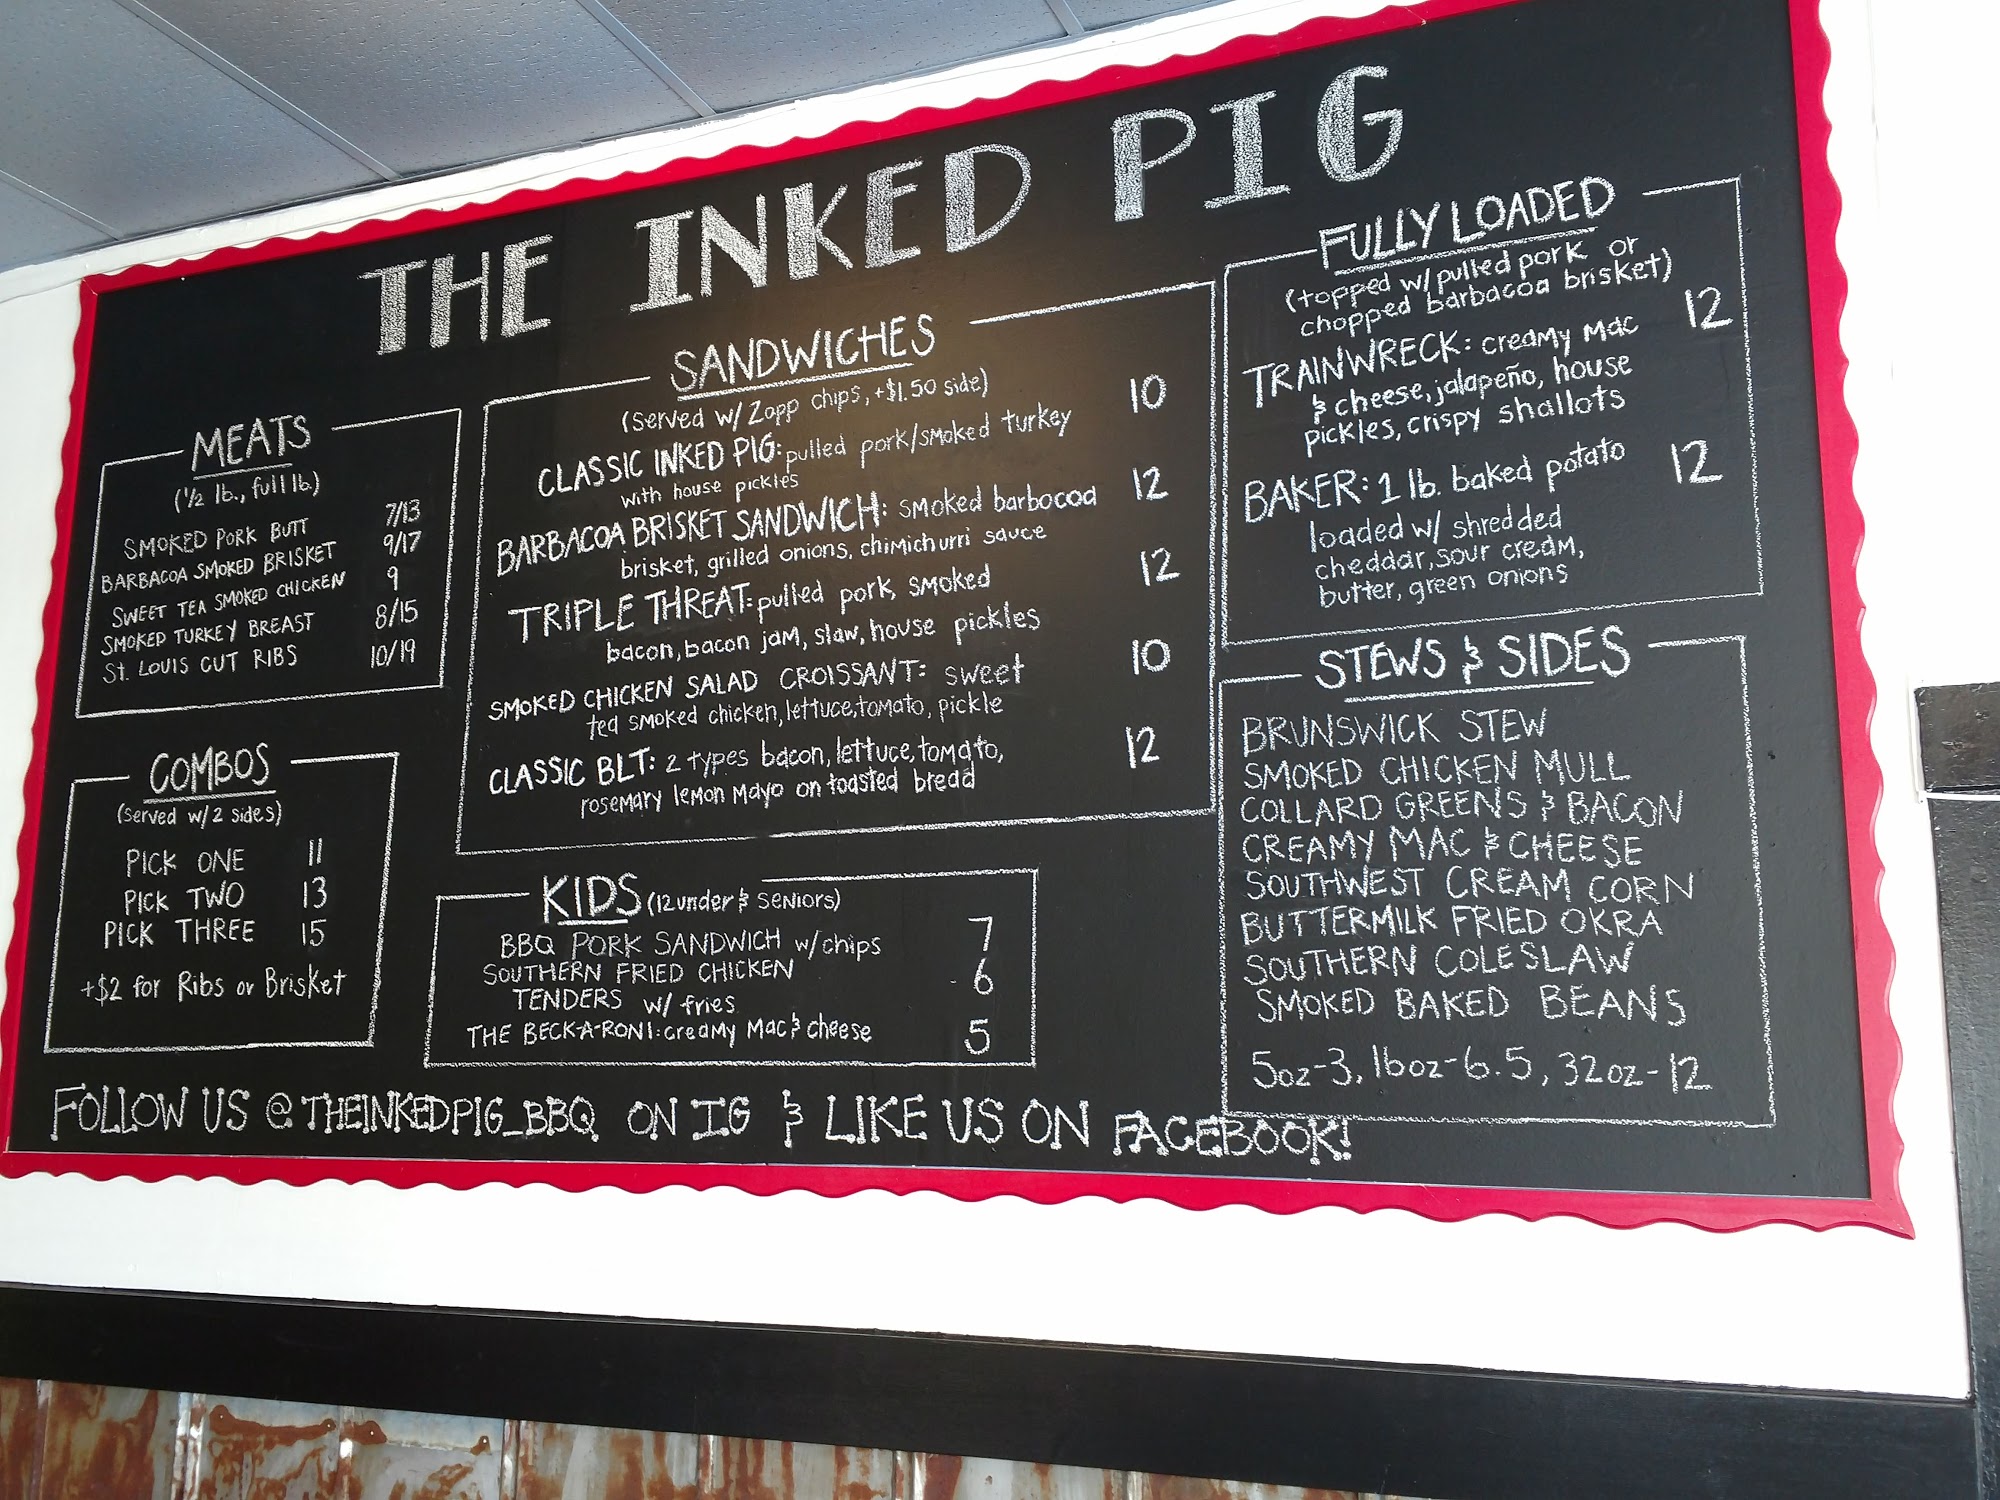 THE INKED PIG
MEATS
(1/2 lb., full lb)
SMOKED PORK BUTT 7/13
BARBACOA SMOKED BRISKET 9/17
SWEET TEA SMOKED CHICKEN 9
SMOKED TURKEY BREAST 8/15
St. LOUIS CUT RIBS 10/19
COMBOS
(served w/2 sides)
PICK ONE 11
PICK TWO 13
PICK THREE 15
+$2 for Ribs or Brisket
SANDWICHES
(served w/ Zapp chips, +$1.50 side)
CLASSIC INKED PIG: pulled pork/smoked turkey 10
with house pickles
BARBACOA BRISKET SANDWICH: smoked barbocoa 12
brisket, grilled onions, chimichurri sauce
TRIPLE THREAT: pulled pork, smoked 12
bacon, bacon jam, slaw, house pickles
SMOKED CHICKEN SALAD CROISSANT: sweet 10
tea smoked chicken, lettuce, tomato, pickle
CLASSIC BLT: 2 types bacon, lettuce, tomato, 12
rosemary lemon mayo on toasted bread
KIDS (12 under & seniors)
BBQ PORK SANDWICH w/chips 7
SOUTHERN FRIED CHICKEN 6
TENDERS w/ fries
THE BECK-A-RONI: creamy Mac & cheese 5
FULLY LOADED
(topped w/pulled pork or
chopped barbacoa brisket)
TRAINWRECK: creamy mac 12
& cheese, jalapeño, house
pickles, crispy shallots
BAKER: 1 lb. baked potato 12
loaded w/ shredded
cheddar, sour cream,
butter, green onions
STEWS & SIDES
BRUNSWICK STEW
SMOKED CHICKEN MULL
COLLARD GREENS & BACON
CREAMY MAC & CHEESE
SOUTHWEST CREAM CORN
BUTTERMILK FRIED OKRA
SOUTHERN COLESLAW
SMOKED BAKED BEANS
5oz-3, 16oz-6.5, 32oz-12
FOLLOW US @THEINKEDPIG_BBQ ON IG & LIKE US ON FACEBOOK!